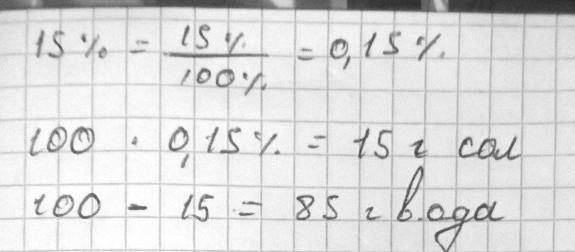 15% = 15% / 100% = 0,15%
100 · 0,15% = 15 г сол
100 - 15 = 85 г вода